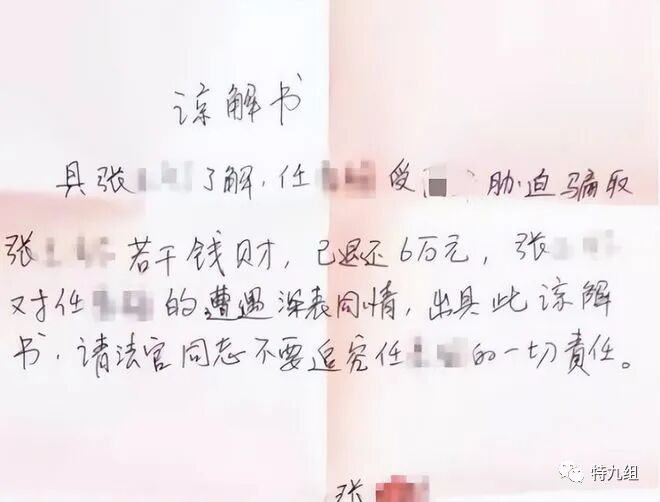 谅解书
具张 了解，任 受 胁迫骗取
张 若干钱财，已退还6万元，张
对任 的遭遇深表同情，出具此谅解
书，请法官同志不要追究任 的一切责任。
张
特九组